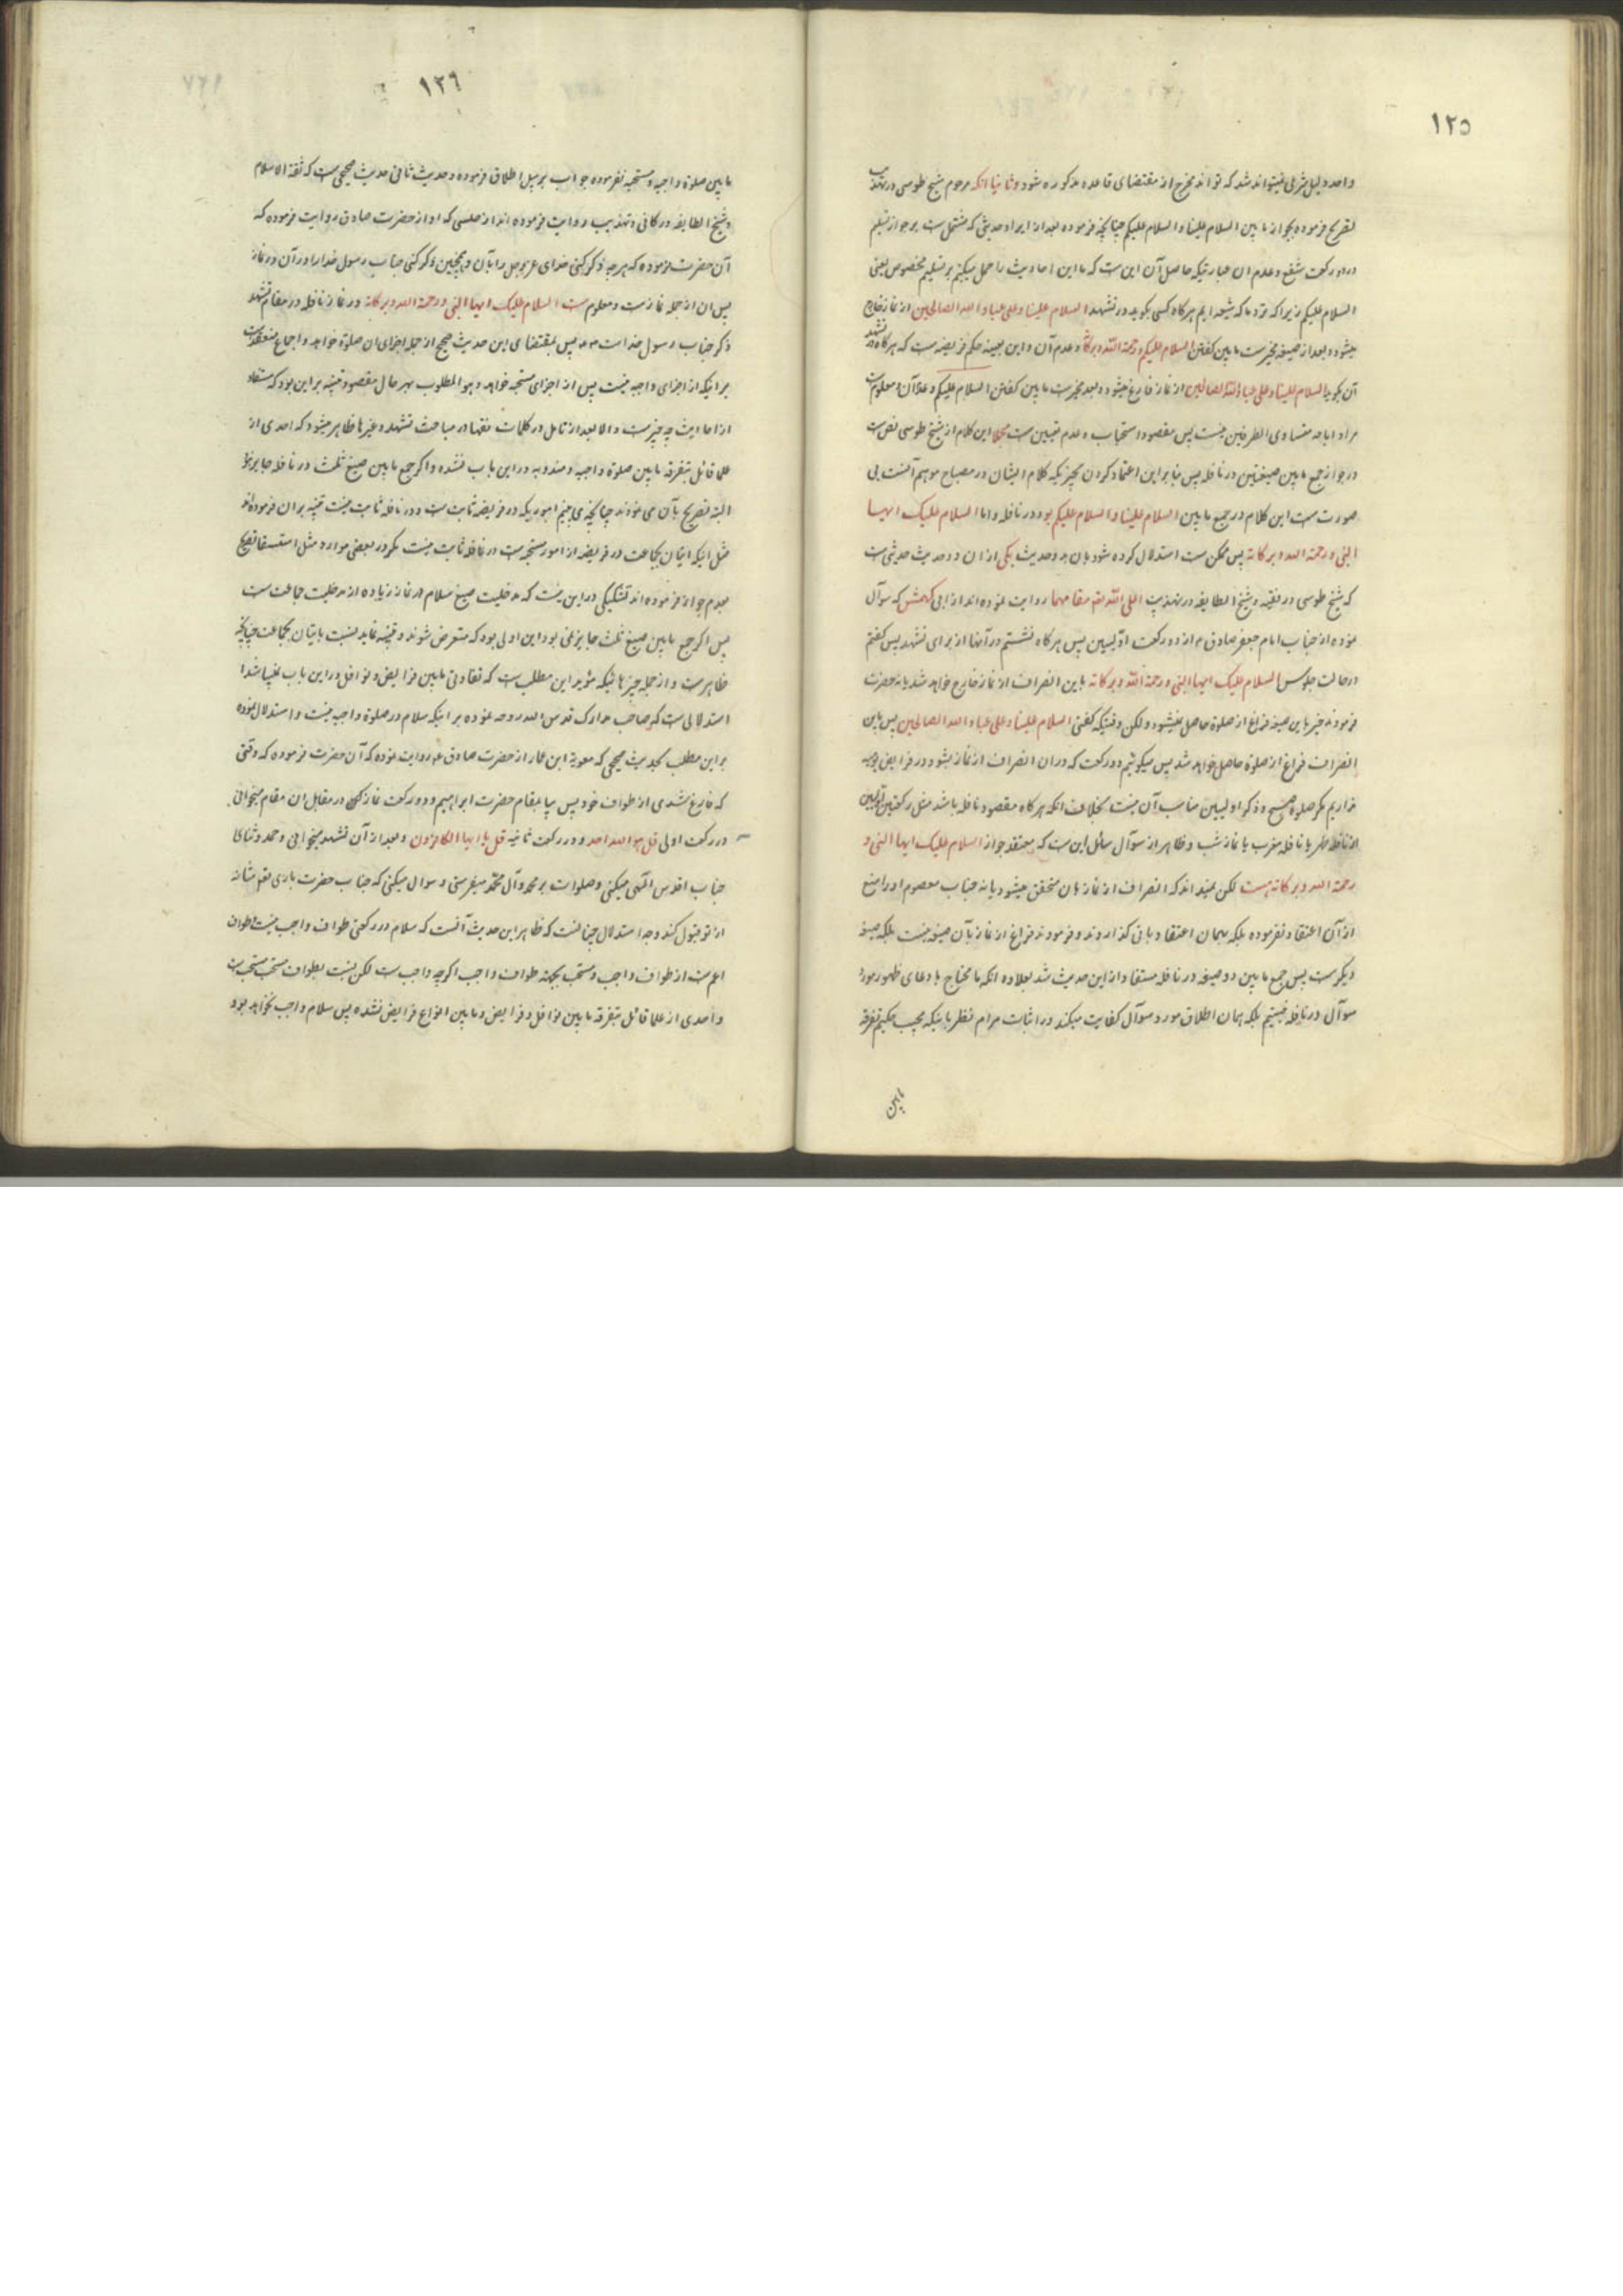 ١٢٥
واحد دلیل شرعی نمیتواند شد که تواند مخرج از مقتضای قاعده مذکوره شود وثانیا انکه مرحوم شیخ طوسی در تهذیب
تصریح فرموده بجواز مابین السلام علینا والسلام علیکم چنانچه فرموده بعد از ایراد حدیثی که مشتمل ست بر جواز تسلیم
در دو رکعت شفع وعدم ان عبارتیکه حاصل آن این ست که ما این احادیث را حمل میکنیم بر تسلیم مخصوص یعنی
السلام علیکم زیرا که نزد ما که شیعه ایم هرگاه کسی بگوید در تشهد السلام علینا وعلی عباد الله الصالحین از نماز خارج
میشود وبعد از صیغه مخیرست مابین کفتن السلام علیکم ورحمة الله وبرکاته وعدم آن واین بعینه حکم فریضه ست که هرگاه در تشهد
آن بگوید السلام علینا وعلی عباد الله الصالحین از نماز فارغ میشود وبعد مخیرست مابین کفتن السلام علیکم وعدم آن ومعلوم ست
مراد اباحه متساوی الطرفین نیست پس مقصود استحباب وعدم تعیین ست مجملا این کلام از شیخ طوسی نص ست
در جواز جمع مابین صیغتین در نافله پس بنابراین اعتماد کردن بچیزیکه کلام ایشان در مصباح موهم آنست بی
صورت ست این کلام در جمع مابین السلام علینا والسلام علیکم بود در نافله واما السلام علیک ایها
النبی ورحمة الله وبرکاته پس ممکن ست استدلال کرده شود بان بدو حدیث یکی از ان دو حدیث حدیثی ست
که شیخ طوسی در فقیه وشیخ الطایفه در تهذیب اعلی الله تعم مقامهما روایت نموده اند از ابی کهمش که سوآل
نموده از جناب امام جعفر صادق ع از دو رکعت اولیین پس هرگاه نشستم در آنها از برای تشهد پس کفتم
در حالت جلوس السلام علیک ایها النبی ورحمة الله وبرکاته باین انصراف از نماز خارج خواهد شد یا نه حضرت
فرمودند خیر باین صیغه فراغ از صلوة حاصل نمیشود ولکن وقتیکه کفتی السلام علینا وعلی عباد الله الصالحین پس باین
انصراف فراغ از صلوة حاصل خواهد شد پس میکوئیم دو رکعت که در ان انصراف از نماز بشود در فرایض یومیه
نداریم مکر صلوة صبح وذکر اولیین مناسب آن نیست بخلاف انکه هرگاه مقصود نافله باشد مثل رکعتین اولیین
از نافله ظهر یا نافله مغرب یا نماز شب وظاهر از سوآل سائل این ست که معتقد جواز السلام علیک ایها النبی و
رحمة الله وبرکاته هست لکن نمیداند که انصراف از نماز بان متحقق میشود یا نه جناب معصوم او را منع
از آن اعتقاد نفرموده بلکه بهمان اعتقاد باقی کذاردند وفرمودند فراغ از نماز بآن صیغه نیست بلکه صیغه
دیکرست پس جمع مابین دو صیغه در نافله مستفاد از این حدیث شد بعلاوه انکه ما محتاج بادعای ظهور مورد
سوآل در نافله نیستیم بلکه همان اطلاق مورد سوآل کفایت میکند در اثبات مرام نظر باینکه مجیب حکیم تفرقه
مابین
١٢٦
مابین صلوة واجبه ومستحبه نفرموده جواب بر سبیل اطلاق فرموده وحدیث ثانی حدیث صحیحی ست که ثقة الاسلام
وشیخ الطایفه در کافی وتهذیب روایت فرموده اند از حلبی که او از حضرت صادق روایت فرموده که
آن حضرت فرموده که هرچه ذکر کنی خدای عزوجل را بآن وهمچنین ذکر کنی جناب رسول خدا را در آن در نماز
پس ان از جمله نمازست ومعلوم ست السلام علیک ایها النبی ورحمة الله وبرکاته در نماز نافله در مقام تشهد
ذکر جناب رسول خداست پس بمقتضای این حدیث صحیح از جمله اجزای ان صلوة خواهد واجماع منعقدست
بر انیکه از اجزای واجبه نیست پس از اجزای مستحبه خواهد وهو المطلوب بهر حال مقصود تنبیه بر این بود که مستفاد
از احادیث چه چیزست والا بعد از تامل در کلمات فقها در مباحث تشهد وغیرها ظاهر میشود که احدی از
علما قائل بتفرقه مابین صلوة واجبه ومندوبه در این باب نشده واکر جمع مابین صیغ ثلث در نافله جایز نبود
البته تصریح بآن می نمودند چنانچه می بینیم اموریکه در فریضه ثابت ست ودر نافله ثابت نیست تنبیه بر ان فرموده اند
مثل انیکه اتیان بجماعت در فریضه از امور مستحبه ست در نافله ثابت نیست مکر در بعضی موارد مثل استسقا تصریح
بعدم جواز فرموده اند تشکیکی در این نیست که مدخلیت صیغ سلام در نماز زیاده از مدخلیت جماعت ست
پس اکر جمع مابین صیغ ثلث جایز نمی بود این اولی بود که متعرض شوند وتنبیه نمایند نسبت باتیان بجماعت چنانچه
ظاهرست واز جمله چیزهائیکه مؤید این مطلب ست که تفاوتی مابین فرایض ونوافل در این باب نمیباشد
استدلالی ست که صاحب مدارک قدس الله روحه نموده بر اینکه سلام در صلوة واجبه نیست واستدلال نموده
بر این مطلب بحدیث صحیحی که معویة ابن عمار از حضرت صادق ع روایت نموده که آن حضرت فرموده که وقتی
که فارغ شدی از طواف خود پس بیا بمقام حضرت ابراهیم ودو رکعت نماز کن در مقابل ان مقام میخوانی
در رکعت اولی قل هو الله احد ودر رکعت ثانیه قل یا ایها الکافرون وبعد از آن تشهد میخوانی وحمد وثنای
جناب اقدس آلهی میکنی وصلوات بر محمد وآل محمد میفرستی وسوال میکنی که جناب حضرت باری تعم شانه
از تو قبول کند وجه استدلال چنانست که ظاهر این حدیث آنست که سلام در رکعتی طواف واجب نیست وطواف
اعم ست از طواف واجب ومستحب بجهة طواف واجب اکرچه واجب ست لکن نسبت بطواف مستحب مستحب ست
واحدی از علما قائل بتفرقه مابین نوافل وفرایض ومابین انواع فرایض نشده پس سلام واجب نخواهد بود